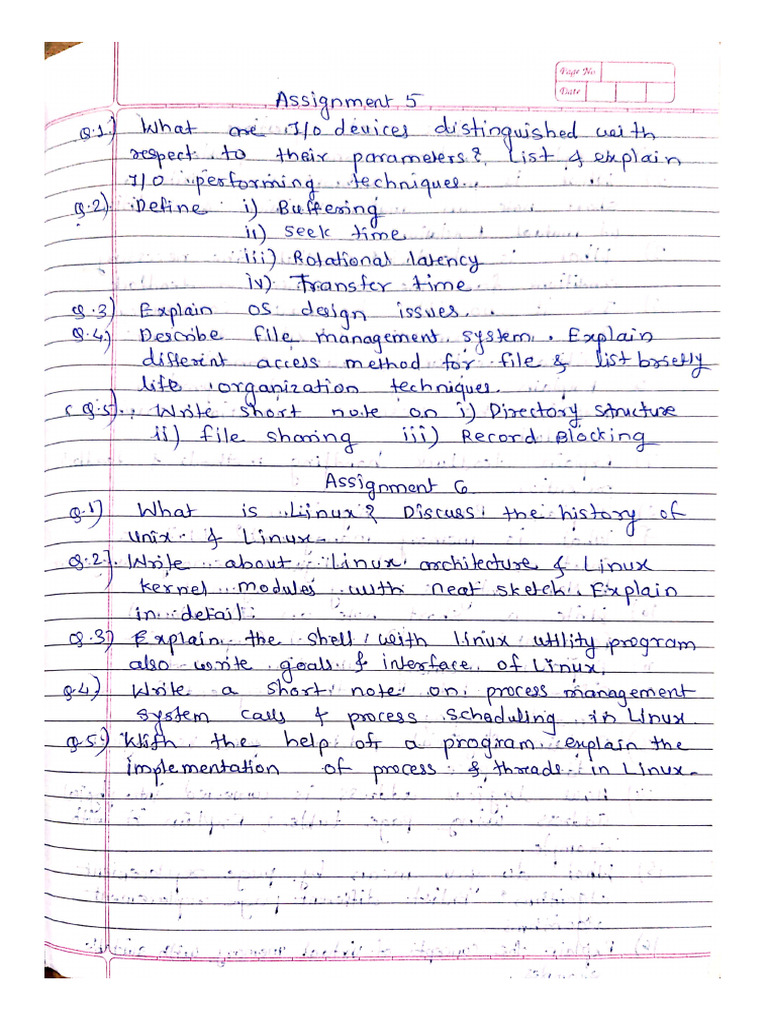 Page No
Date
Assignment 5
Q.1) What are I/o devices distinguished with
respect to their parameters? List & explain
I/O performing techniques.
Q.2) Define i) Buffering
ii) Seek time
iii) Rotational latency
iv) Transfer time
Q.3) Explain OS design issues.
Q.4) Describe file management system. Explain
different access method for file & list briefly
life organization techniques.
Q.5). Write short note on i) Directory structure
ii) file sharing iii) Record Blocking
Assignment 6
Q.1) What is Linux? Discuss the history of
Unix & Linux.
Q.2). Write about Linux architecture & Linux
kernel modules with neat sketch. Explain
in detail.
Q.3) Explain the shell with linux utility program
also write goals & interface of Linux.
Q.4) Write a short note on process management
system calls & process scheduling in Linux
Q.5) With the help of a program explain the
implementation of process & threads in Linux.